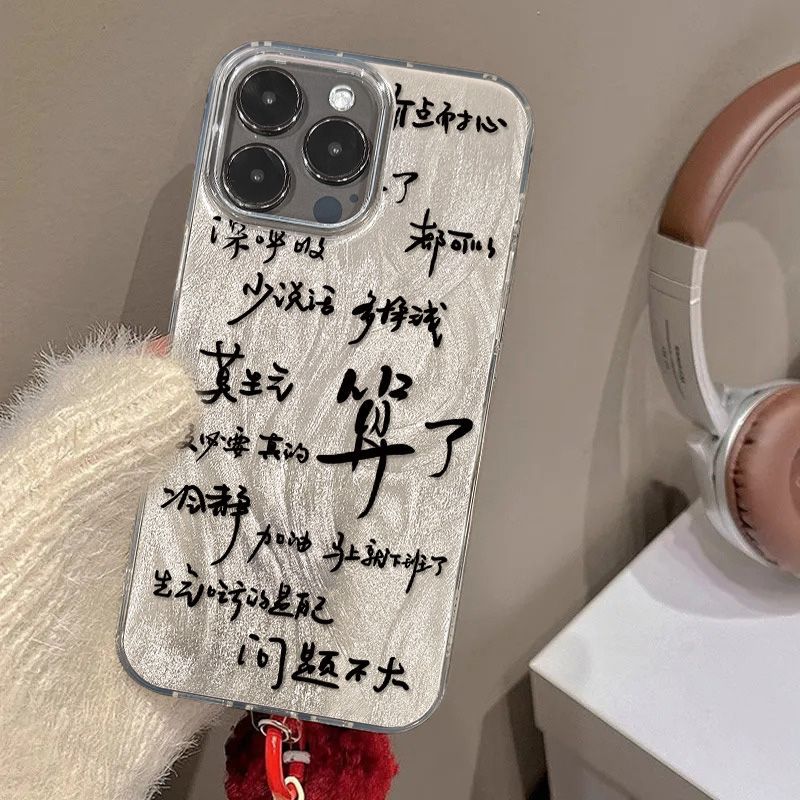 有点耐心
了
深呼吸
都可以
少说话 多挣钱
莫生气
算了
没必要 真的
冷静
加油 马上就下班了
生气吃亏的是自己
问题不大